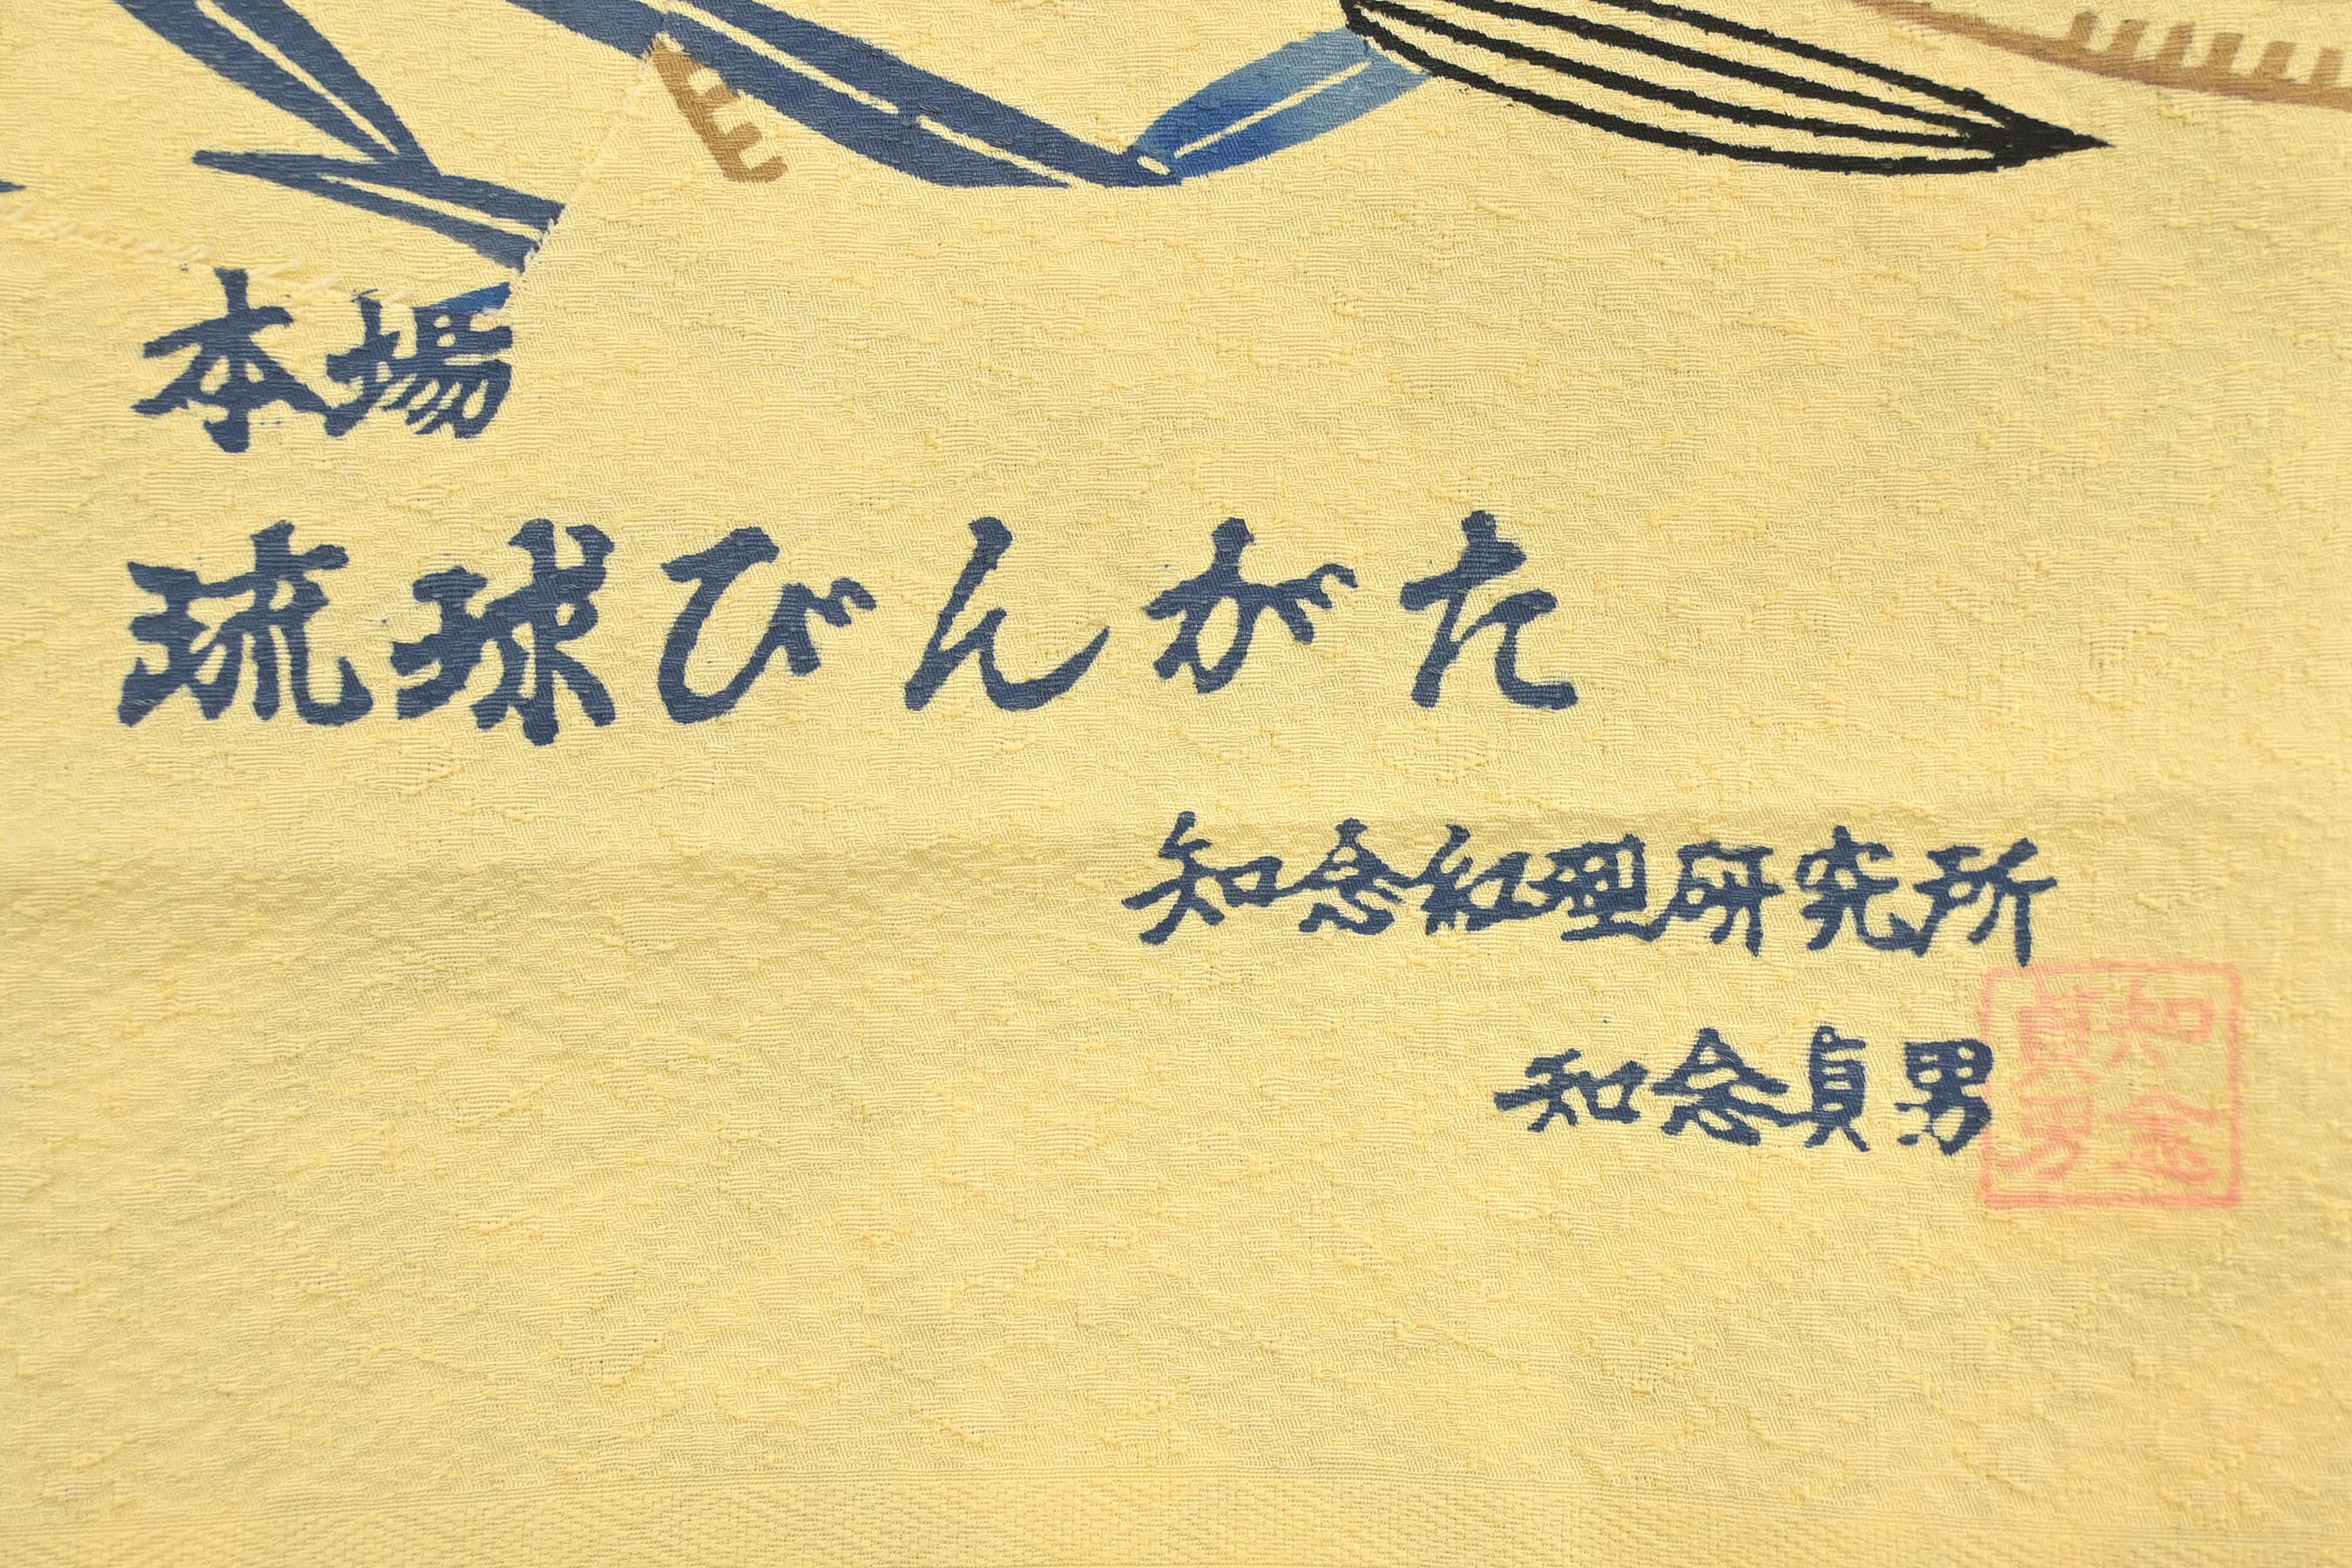 本場
琉球びんがた
知念紅型研究所
知念貞男
知念
貞男